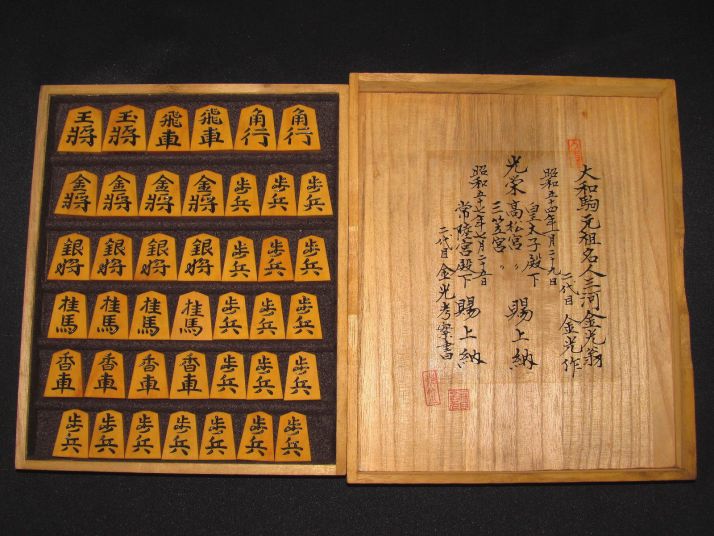 王將 玉將 飛車 飛車 角行 角行
金將 金將 金將 金將 歩兵 歩兵 歩兵
銀将 銀将 銀将 銀将 歩兵 歩兵 歩兵
桂馬 桂馬 桂馬 桂馬 歩兵 歩兵 歩兵
香車 香車 香車 香車 歩兵 歩兵 歩兵
歩兵 歩兵 歩兵 歩兵 歩兵 歩兵 歩兵
大和駒元祖名人三河金光翁
二代目 金光作
昭和五十四年一月二十九日
皇太子殿下
光栄 高松宮〃 賜上納
三笠宮〃
昭和五十七年七月二十五日
常陸宮殿下 賜上納
二代目金光考案書